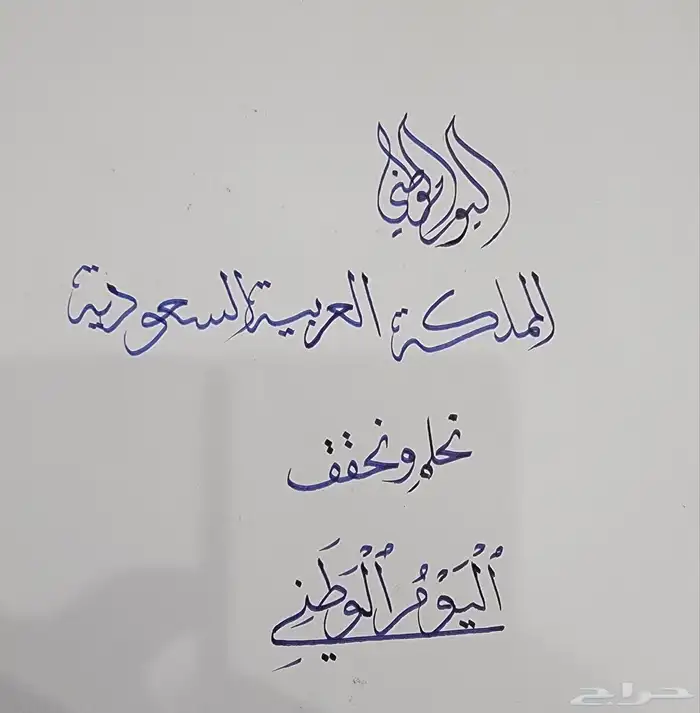 اليوم الوطني
المملكة العربية السعودية
نحلم ونحقق
ٱلْيَوْمُ ٱلْوَطَنِي
حراج